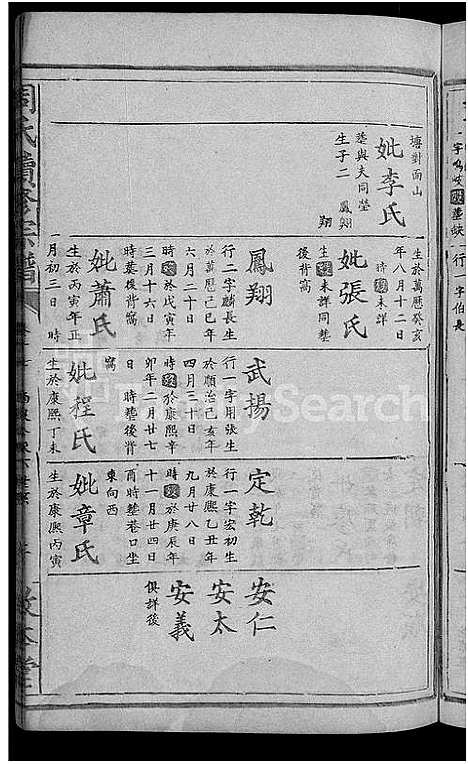 塘對面山
妣李氏
塟與夫同塋
生子二 鳳翔
翔
生於萬歷癸亥
年八月十二日
時歿未詳
妣張氏
生歿未詳同塟
後背窩
鳳翔
行二字麟長生
於萬歷己巳年
六月二十日
時歿於戊寅年
三月十六日
時塟後背窩
妣蕭氏
生於丙寅年正
月初三日 時
武揚
行一字用張生
於順治己亥年
四月三十日
時歿於康熙辛
卯年二月廿七
日 時塟後背
窩
妣程氏
生於康熙丁未
定乾
行一字宏初生
於康熙乙丑年
九月廿八日
時歿於庚辰年
十一月廿四日
酉時塟巷口坐
東向西
妣章氏
生於康熙丙寅
安仁
安太
安義
俱詳後
周氏續修宗譜
行一字伯長
FamilySearch